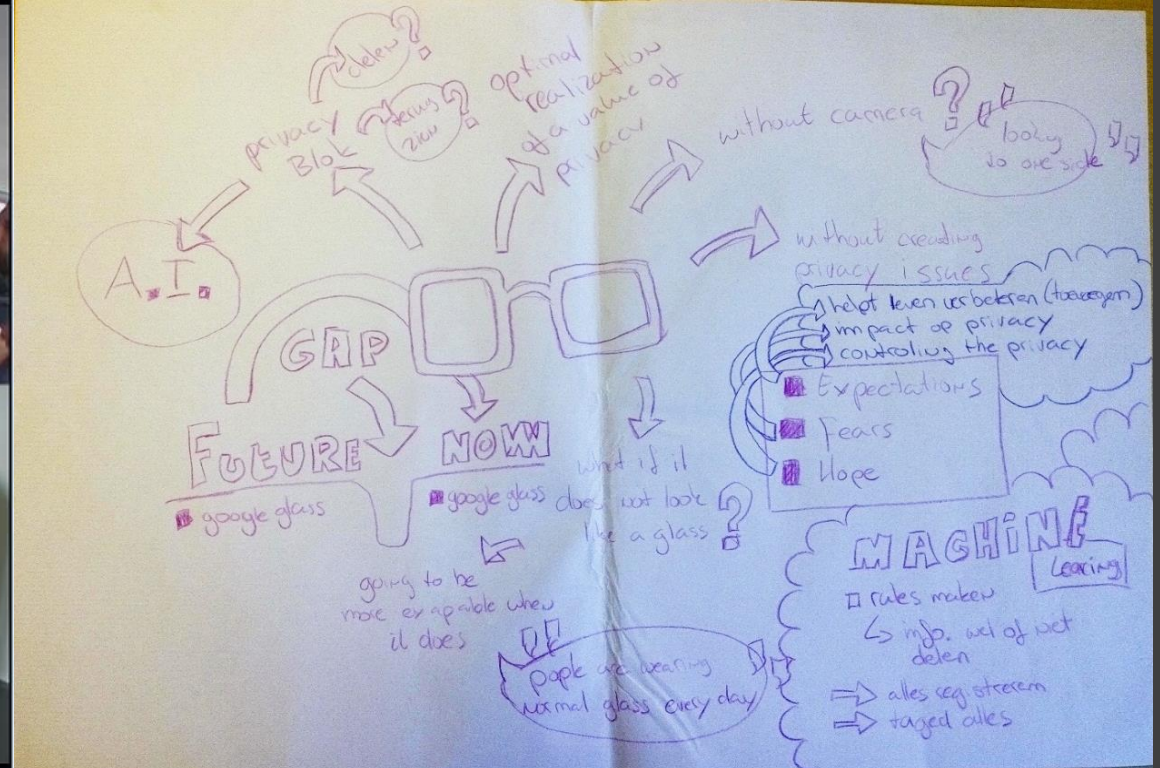 delen?
privacy
Blok
terug
zien?
optimal
realization
of a value of
privacy
without camera?
"looking
to one side"
A.I.
without creading
privacy issues
helpt leven verbeteren (toevoegen)
impact op privacy
controling the privacy
GAP
Expectations
Fears
Hope
FUTURE
google glass
NOW
google glass
what if it
does not look
like a glass?
going to be
more when
it does
"people are wearing
normal glass every day"
MACHINE
Learing
rules maken
info. wel of niet
delen
alles registreren
taged alles